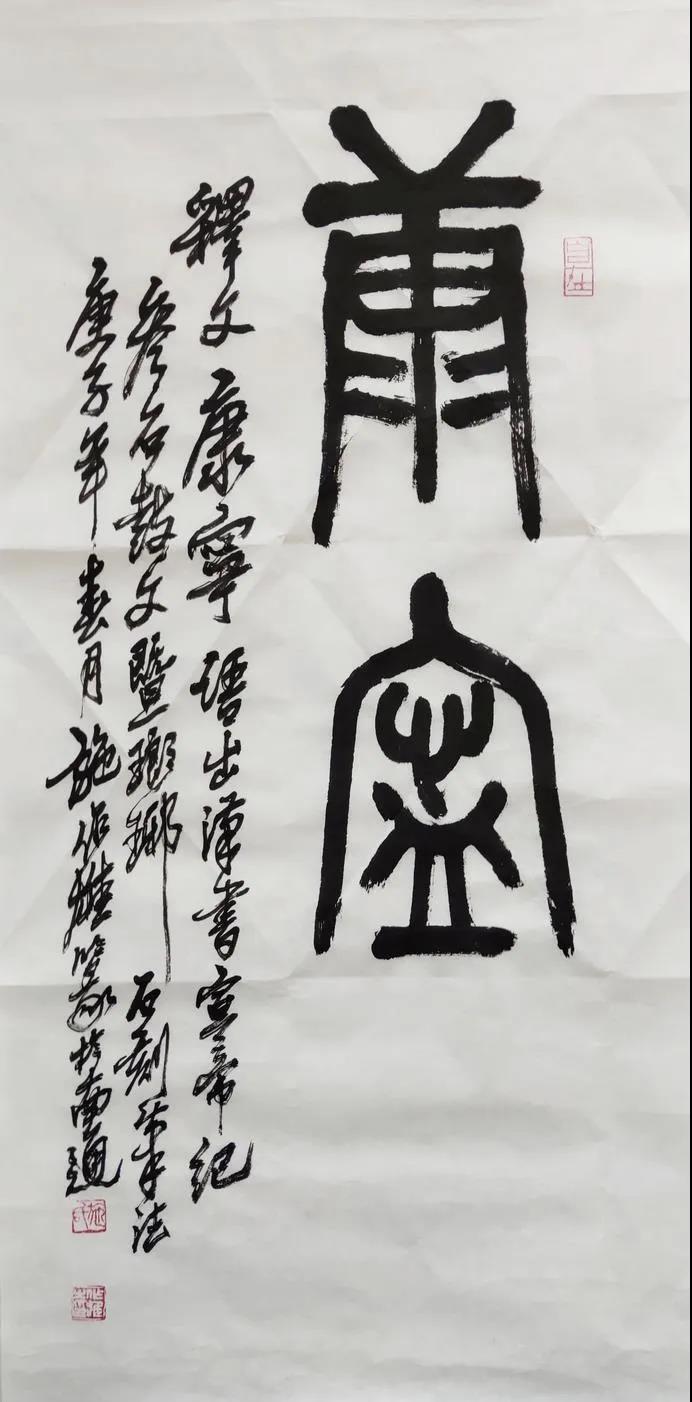 康寧
自在
釋文康寧語出漢書宣帝紀
參石鼓文暨瑯琊石刻筆法
庚子年春月施作雄篆於南通